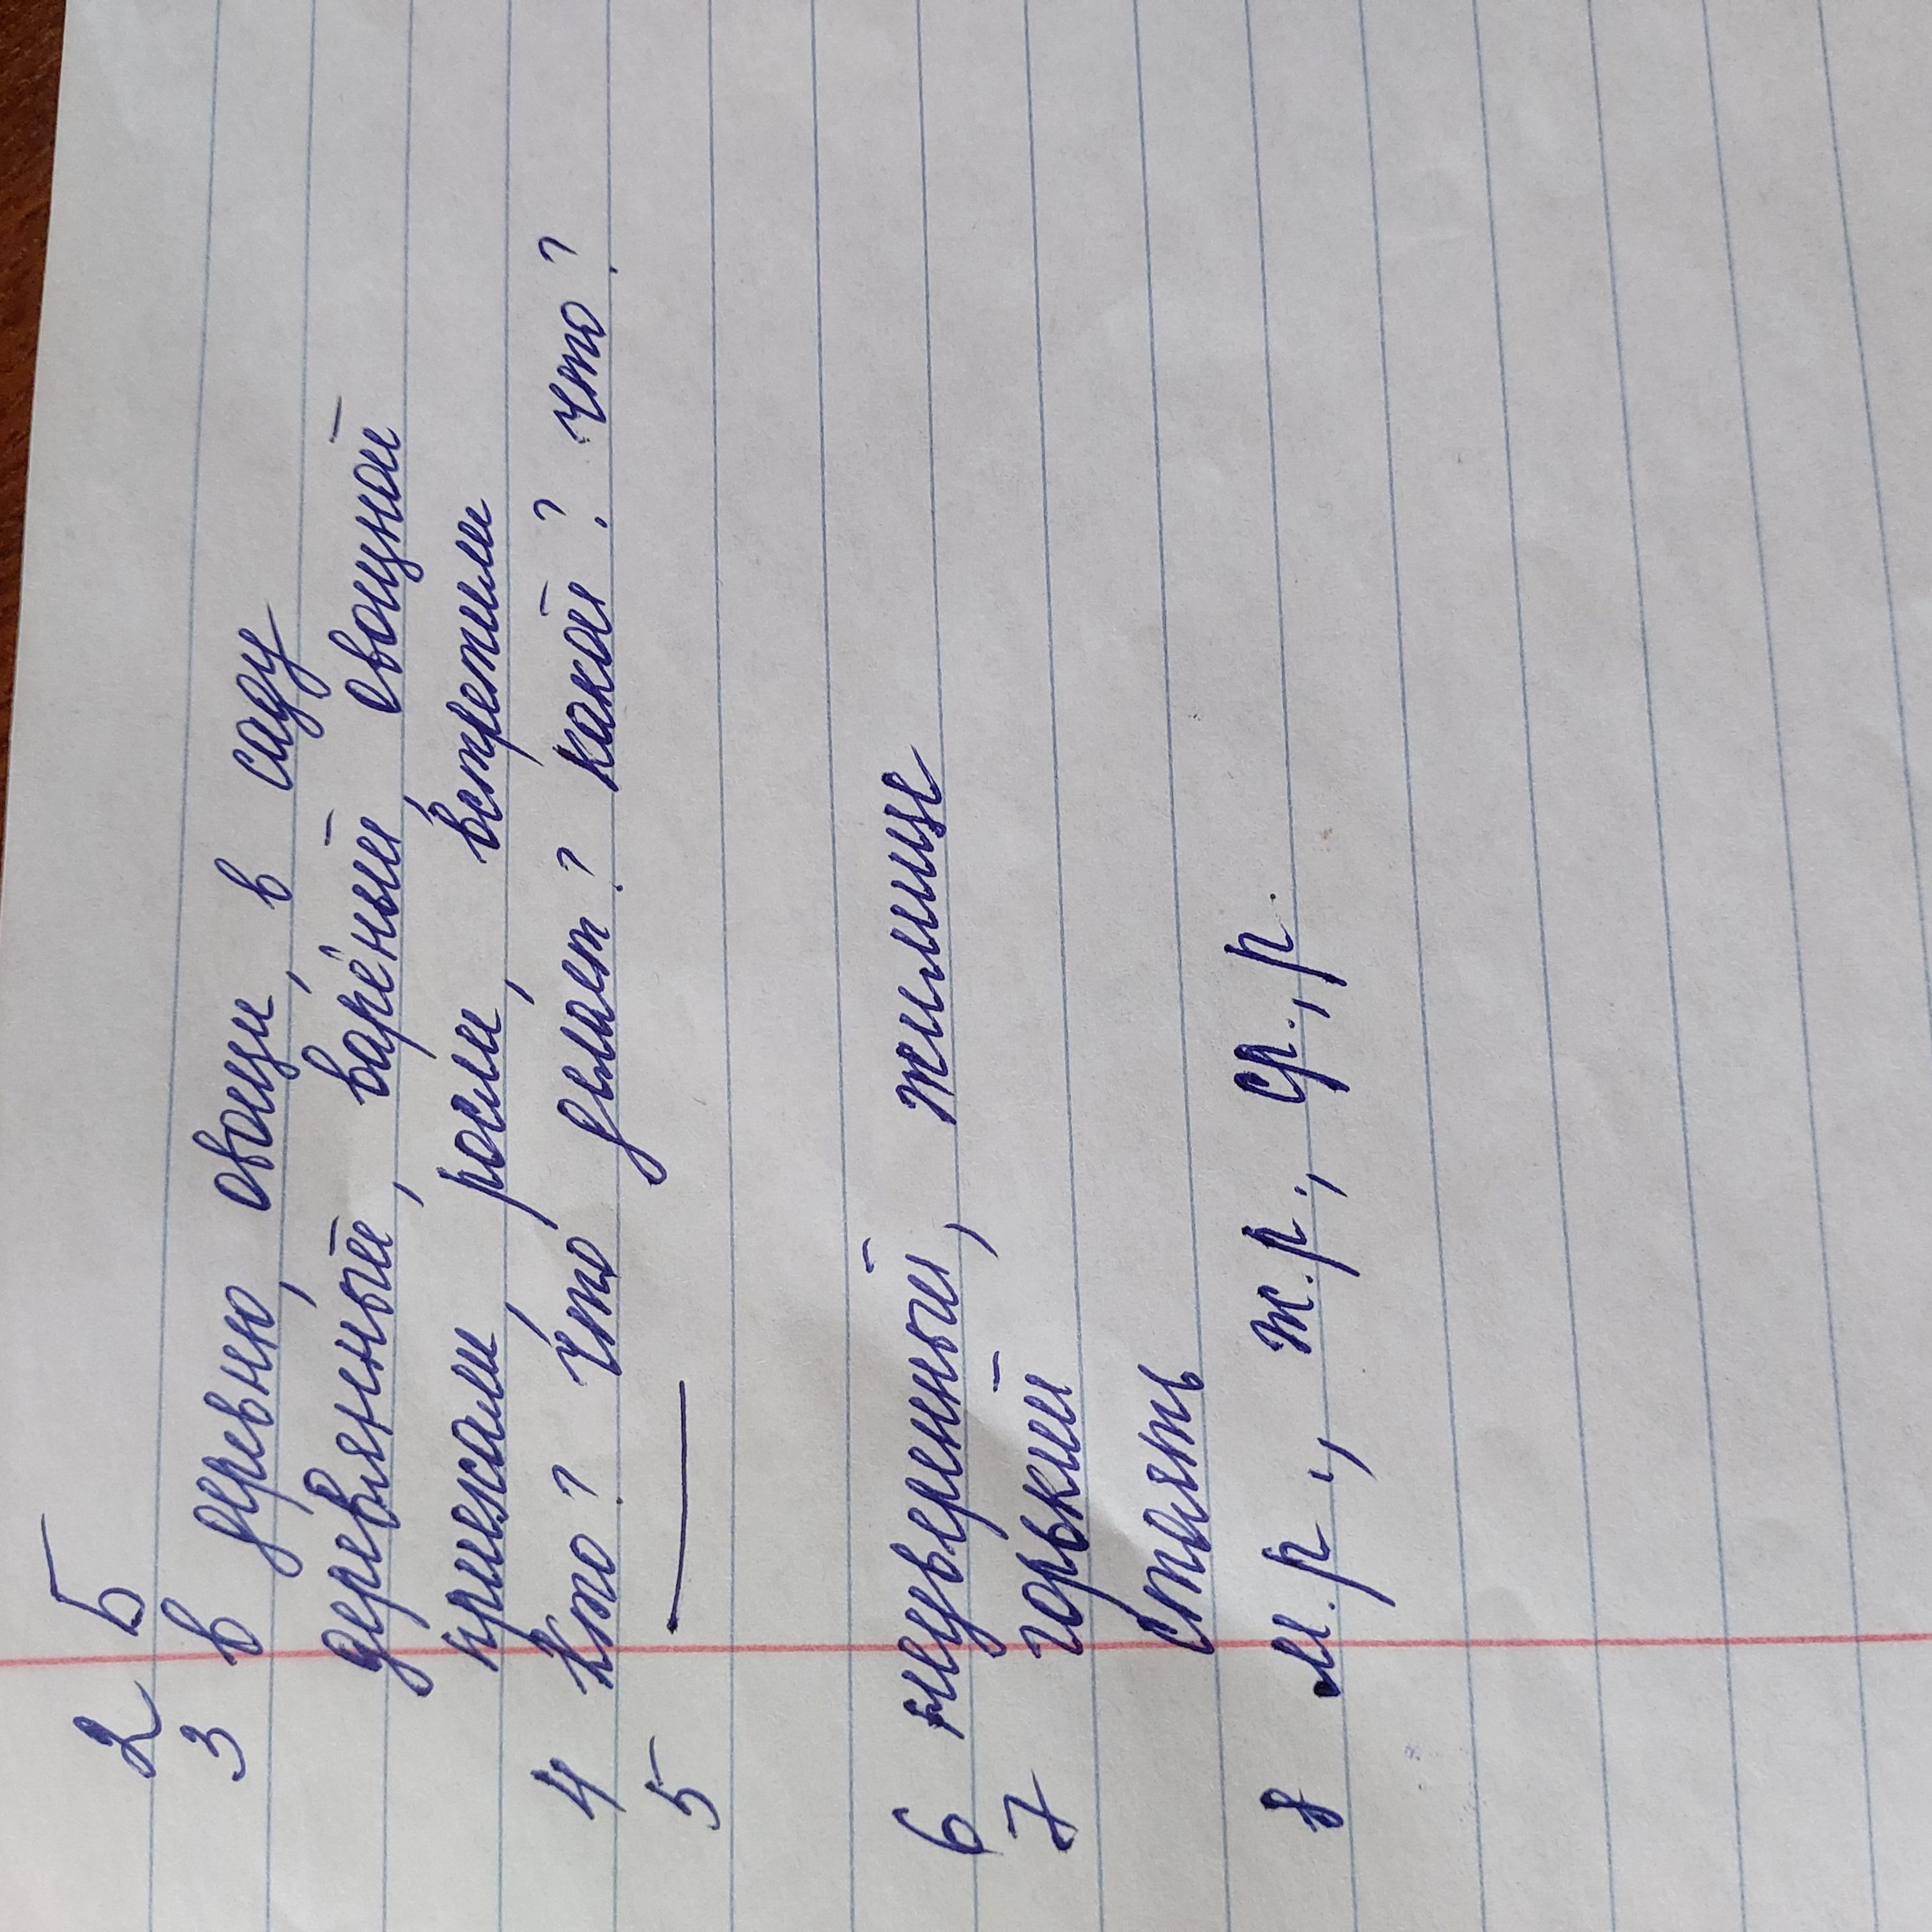 2 Б
3 в деревню, овощи, в саду
деревянный, варёный, овощной
приехали, росли, встретили
4 кто? что делает? какой? что?
5 —
6 неуверенный, жилище
7 горький
стоять
8 м.р., ж.р., ср.,р.